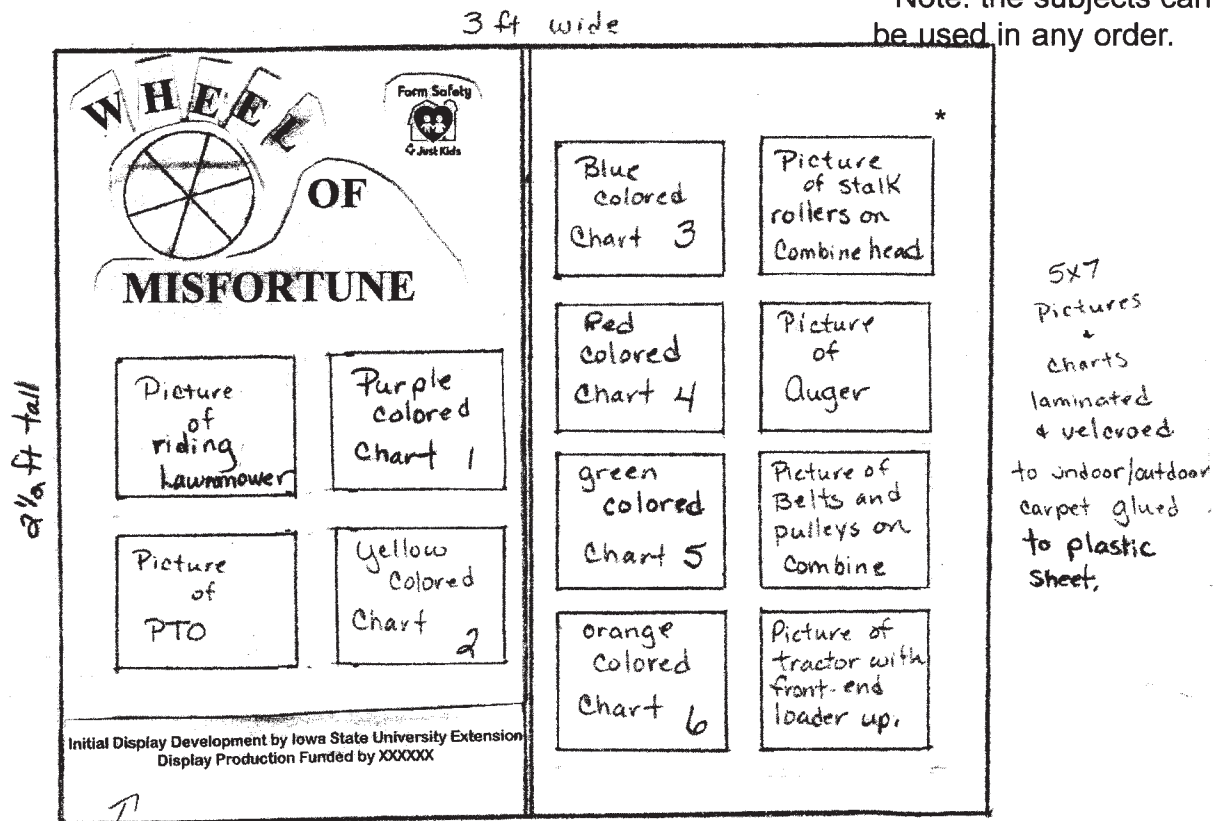 Note: the subjects can
be used in any order.
3 ft wide
2 1/2 ft tall
WHEEL
OF
MISFORTUNE
Farm Safety
4 Just Kids
Picture
of
riding
Lawnmower
Purple
colored
Chart 1
Picture
of
PTO
Yellow
Colored
Chart
2
Initial Display Development by Iowa State University Extension
Display Production Funded by XXXXXX
*
Blue
colored
Chart 3
Picture
of stalk
rollers on
Combine head
Red
colored
Chart 4
Picture
of
Auger
green
colored
Chart 5
Picture of
Belts and
pulleys on
Combine
orange
Colored
Chart 6
Picture of
tractor with
front-end
loader up.
5x7
Pictures
+
charts
laminated
+ velcroed
to indoor/outdoor
carpet glued
to plastic
sheet.